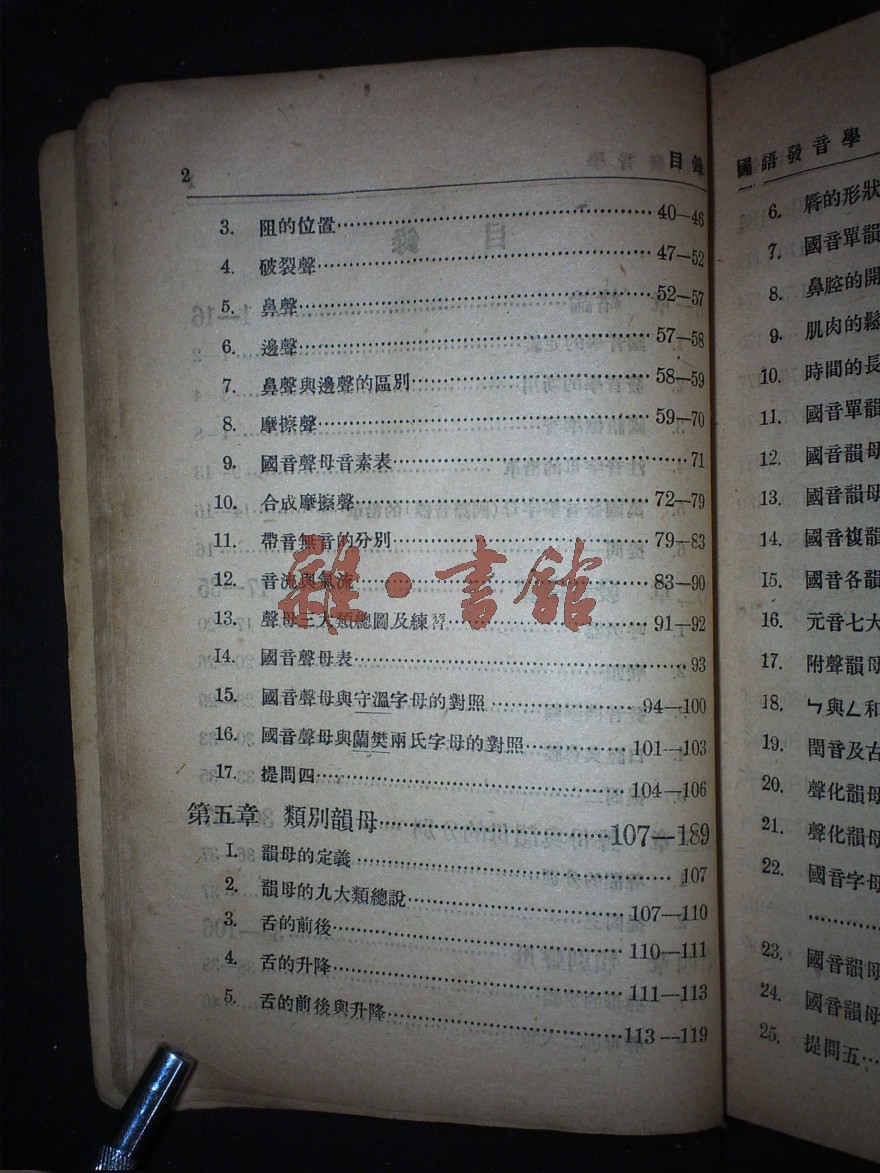 2 目錄
3. 阻的位置 40—46
4. 破裂聲 47—52
5. 鼻聲 52—57
6. 邊聲 57—58
7. 鼻聲與邊聲的區別 58—59
8. 摩擦聲 59—70
9. 國音聲母音素表 71
10. 合成摩擦聲 72—79
11. 帶音無音的分別 79—83
12. 音流與氣流 83—90
13. 聲母三大類總圖及練習 91—92
14. 國音聲母表 93
15. 國音聲母與守溫字母的對照 94—100
16. 國音聲母與蘭樊兩氏字母的對照 101—103
17. 提問四 104—106
第五章 類別韻母 107—189
1. 韻母的定義 107
2. 韻母的九大類總說 107—110
3. 舌的前後 110—111
4. 舌的升降 111—113
5. 舌的前後與升降 113—119
雜·書館
國語發音學
6. 唇的形狀
7. 國音單韻
8. 鼻腔的開
9. 肌肉的鬆
10. 時間的長
11. 國音單韻
12. 國音韻母
13. 國音韻母
14. 國音複韻
15. 國音各韻
16. 元音七大
17. 附聲韻母
18. ㄣ與ㄥ和
19. 閏音及古
20. 聲化韻母
21. 聲化韻母
22. 國音字母
23. 國音韻母
24. 國音韻母
25. 提問五